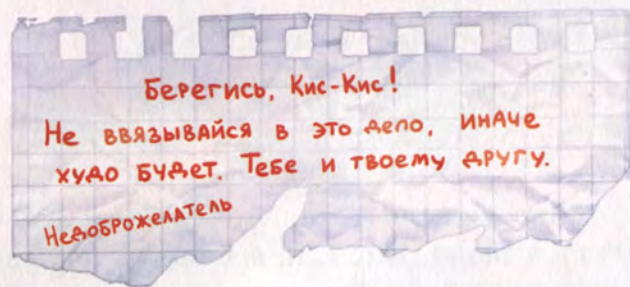 Берегись, Кис-Кис!
Не ввязывайся в это дело, иначе
худо будет. Тебе и твоему другу.
Недоброжелатель